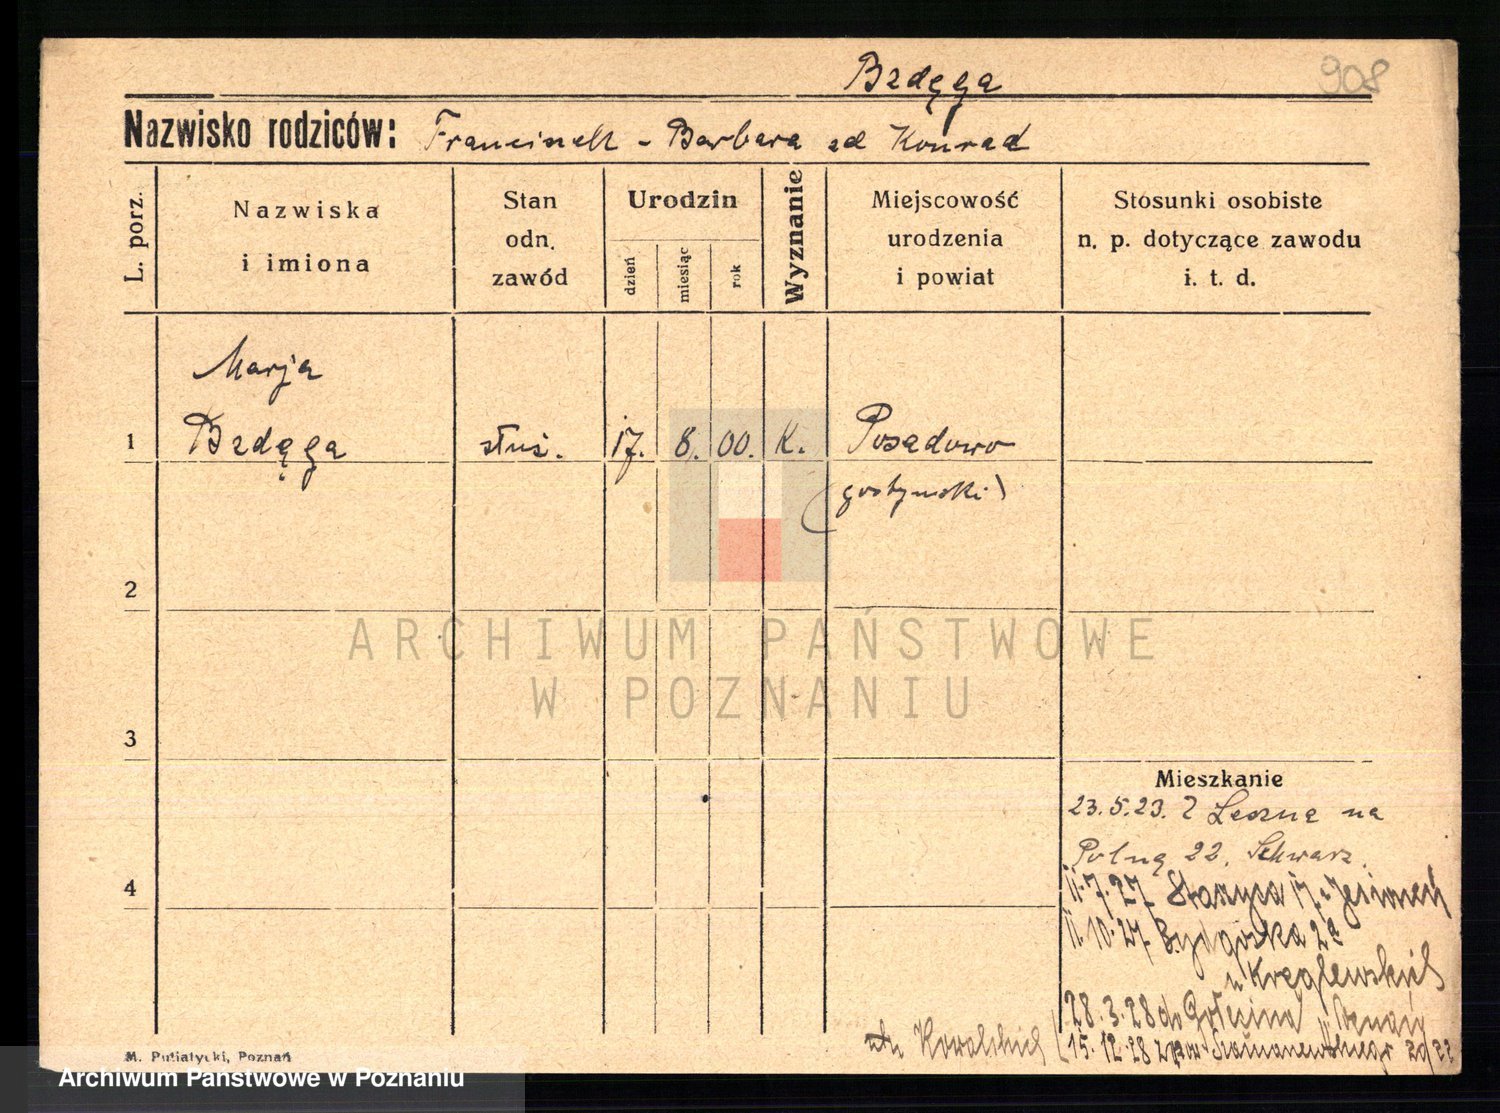 Bzdęga
908
Nazwisko rodziców: Franciszek - Barbara zd Konrad
L. porz.
Nazwiska
i imiona
Stan
odn.
zawód
Urodzin
dzień
miesiąc
rok
Wyznanie
Miejscowość
urodzenia
i powiat
Stosunki osobiste
n. p. dotyczące zawodu
i. t. d.
Marja
1 Bzdęga służ. 17. 8. 00. K. Posadowo
(gostyński)
2
ARCHIWUM PAŃSTWOWE
W POZNANIU
3
Mieszkanie
23.5.23. Z Leszna na
Polną 22. Schwarz.
4
11.7.27 Staszyca 17
11.10.27 Bydgoska 2a
u Kręglewskich
28.3.28 do Gołęcina
u Kowalskich
15.12.28
M. Putiatycki, Poznań
Archiwum Państwowe w Poznaniu